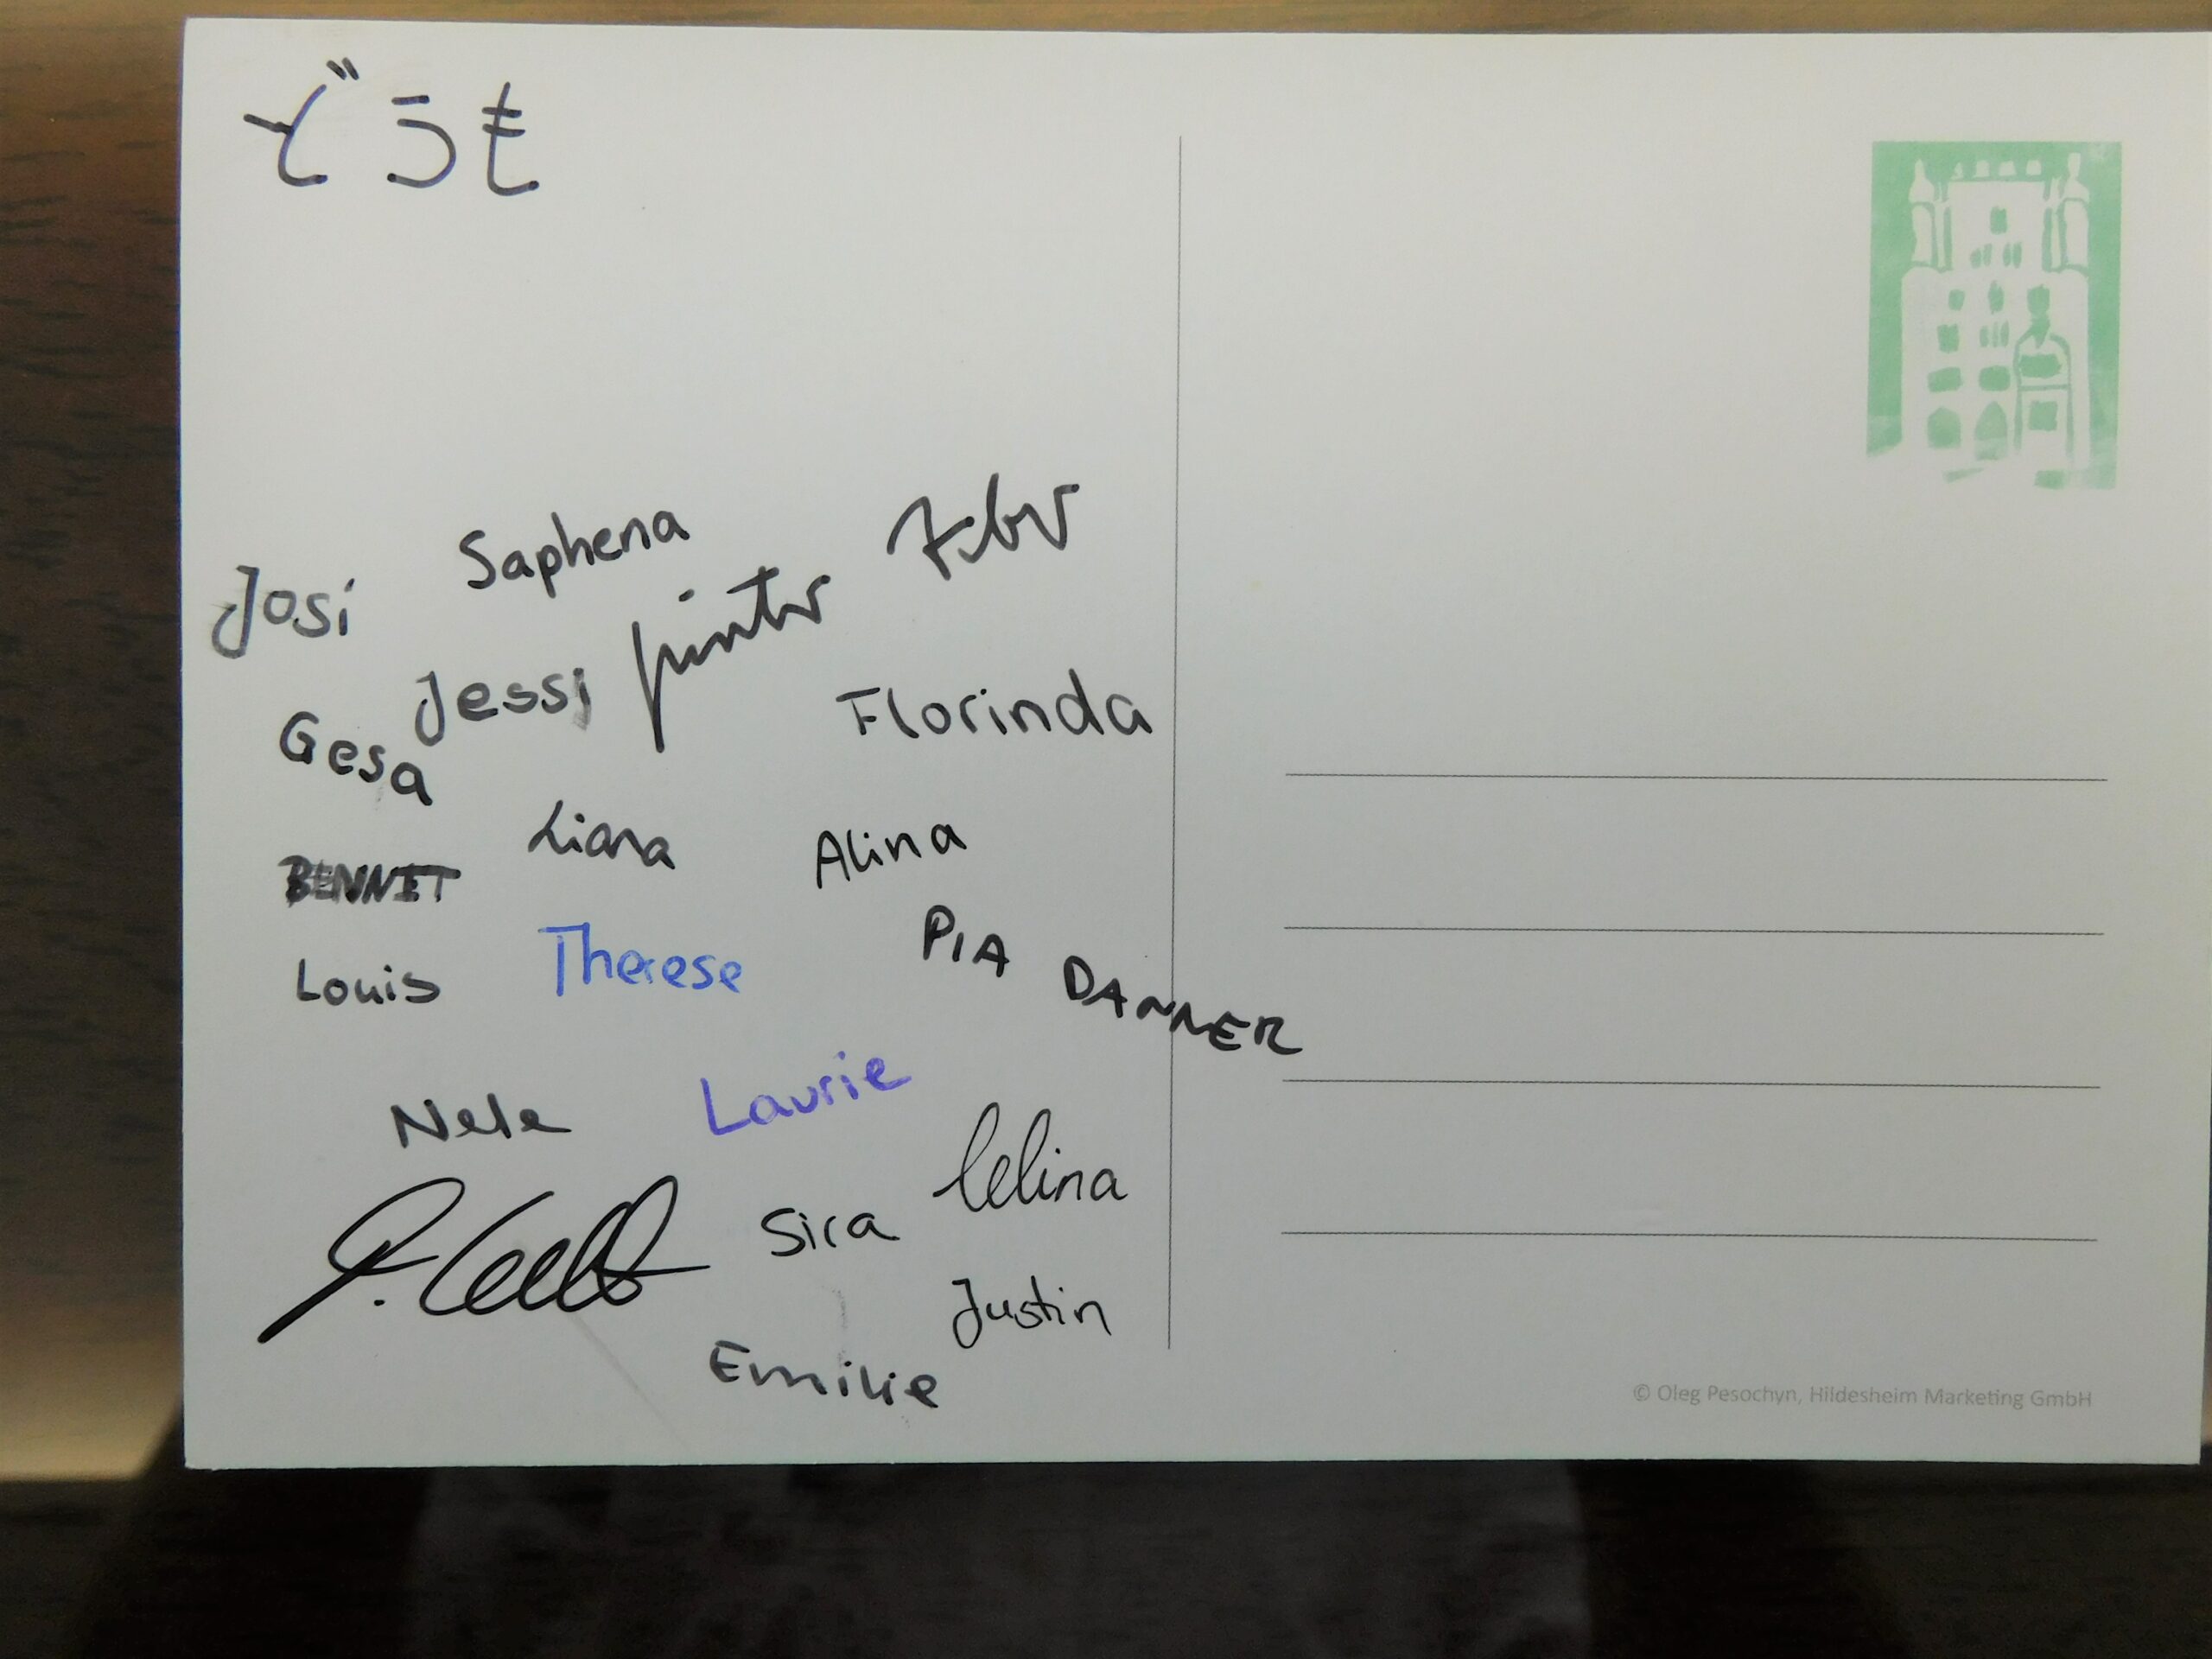 どうも
Saphena
Josi
Jessi
Florinda
Gesa
Liana
Alina
BENNET
PIA DANNER
Louis
Therese
Laurie
Nele
Celina
Sira
Justin
Emilie
© Oleg Pesochyn, Hildesheim Marketing GmbH